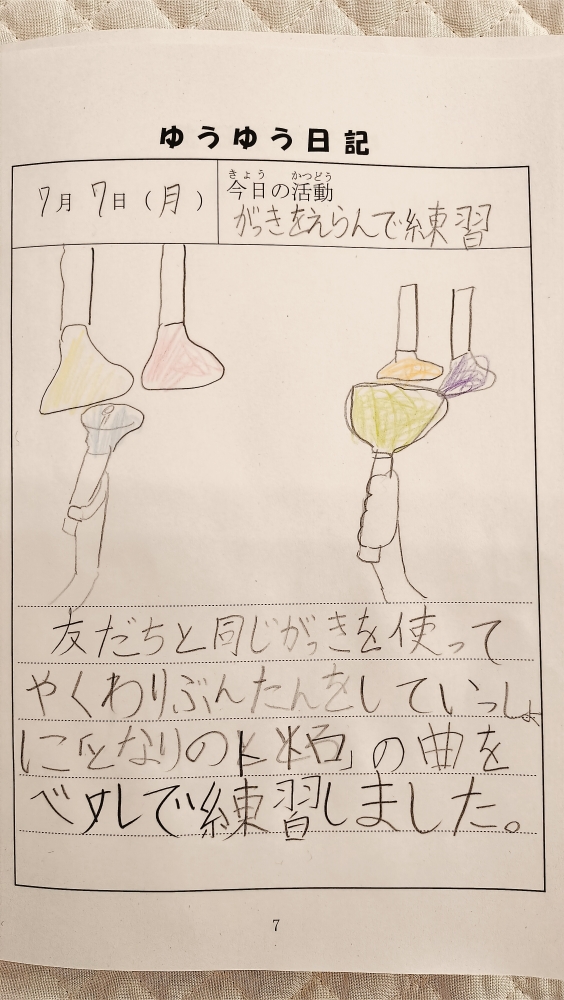 ゆうゆう日記
7月 7日（月）
きょう かつどう
今日の活動
がっきをえらんで練習
友だちと同じがっきを使って
やくわりぶんたんをしていっしょ
に「となりのトトロ」の曲を
ベルで練習しました。
7